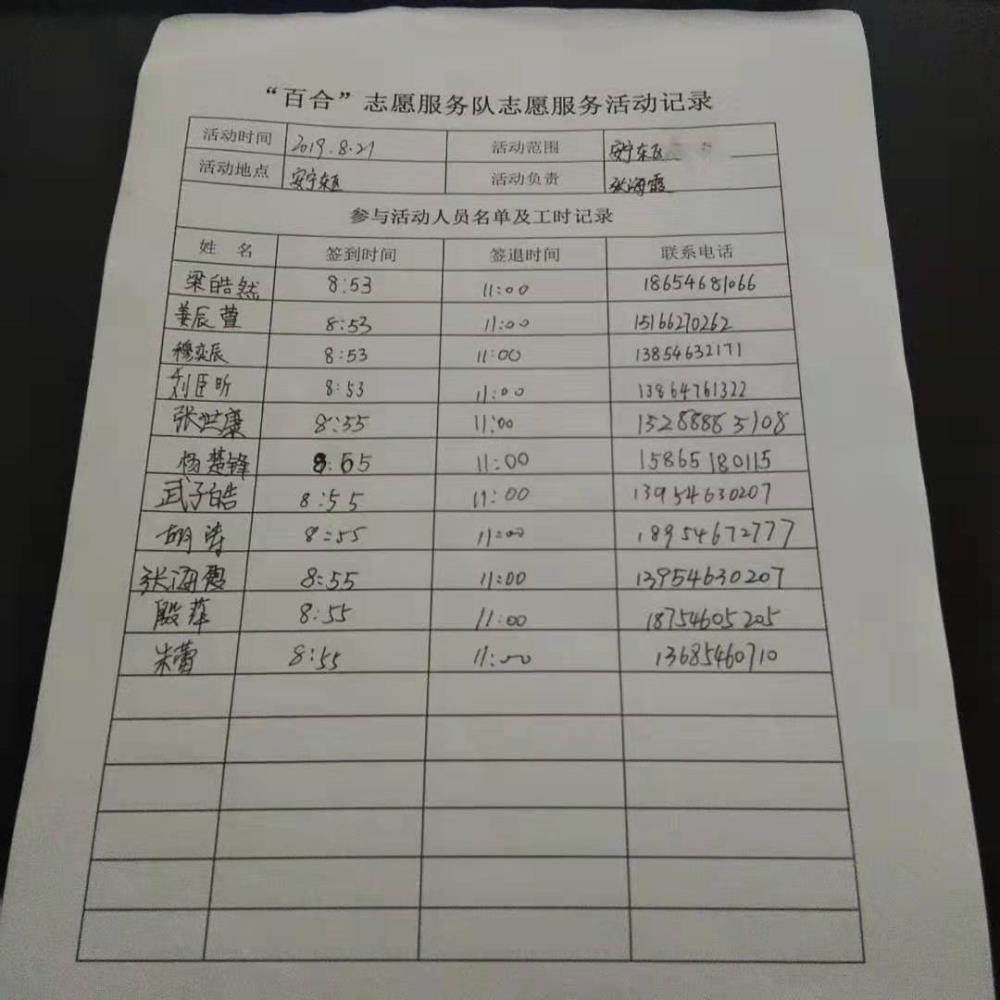 “百合”志愿服务队志愿服务活动记录
活动时间 2019.8.21 活动范围 安宁东区
活动地点 安宁东区 活动负责 张海霞
参与活动人员名单及工时记录
姓 名 签到时间 签退时间 联系电话
梁皓然 8:53 11:00 18654681066
姜辰萱 8:53 11:00 15166270262
穆奕辰 8:53 11:00 13854632171
刘臣昕 8:53 11:00 13864761322
张洪康 8:55 11:00 15288885108
杨楚锋 8:55 11:00 15865180115
武子皓 8:55 11:00 13954630207
胡涛 8:55 11:00 18954672777
张海霞 8:55 11:00 13954630207
殷萍 8:55 11:00 18754605205
朱蕾 8:55 11:00 13685460710